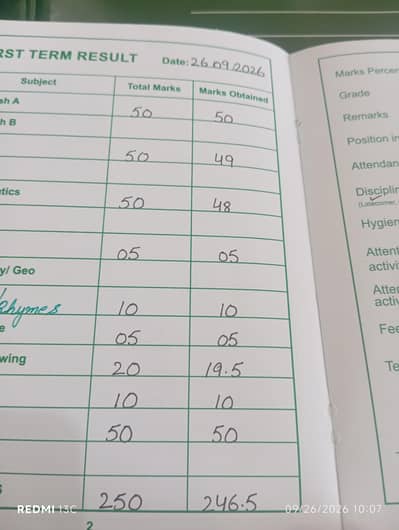 RST TERM RESULT Date: 26.09.2026
Subject Total Marks Marks Obtained
sh A 50 50
h B
50 49
tics 50 48
05 05
y/ Geo
Rhymes 10 10
e 05 05
wing 20 19.5
10 10
50 50
s 250 246.5
2
Marks Percen
Grade
Remarks
Position in
Attendan
Disciplin
(Latecomer,
Hygien
Attent
activi
Atte
activ
Fee
Te
REDMI 13C 09/26/2026 10:07